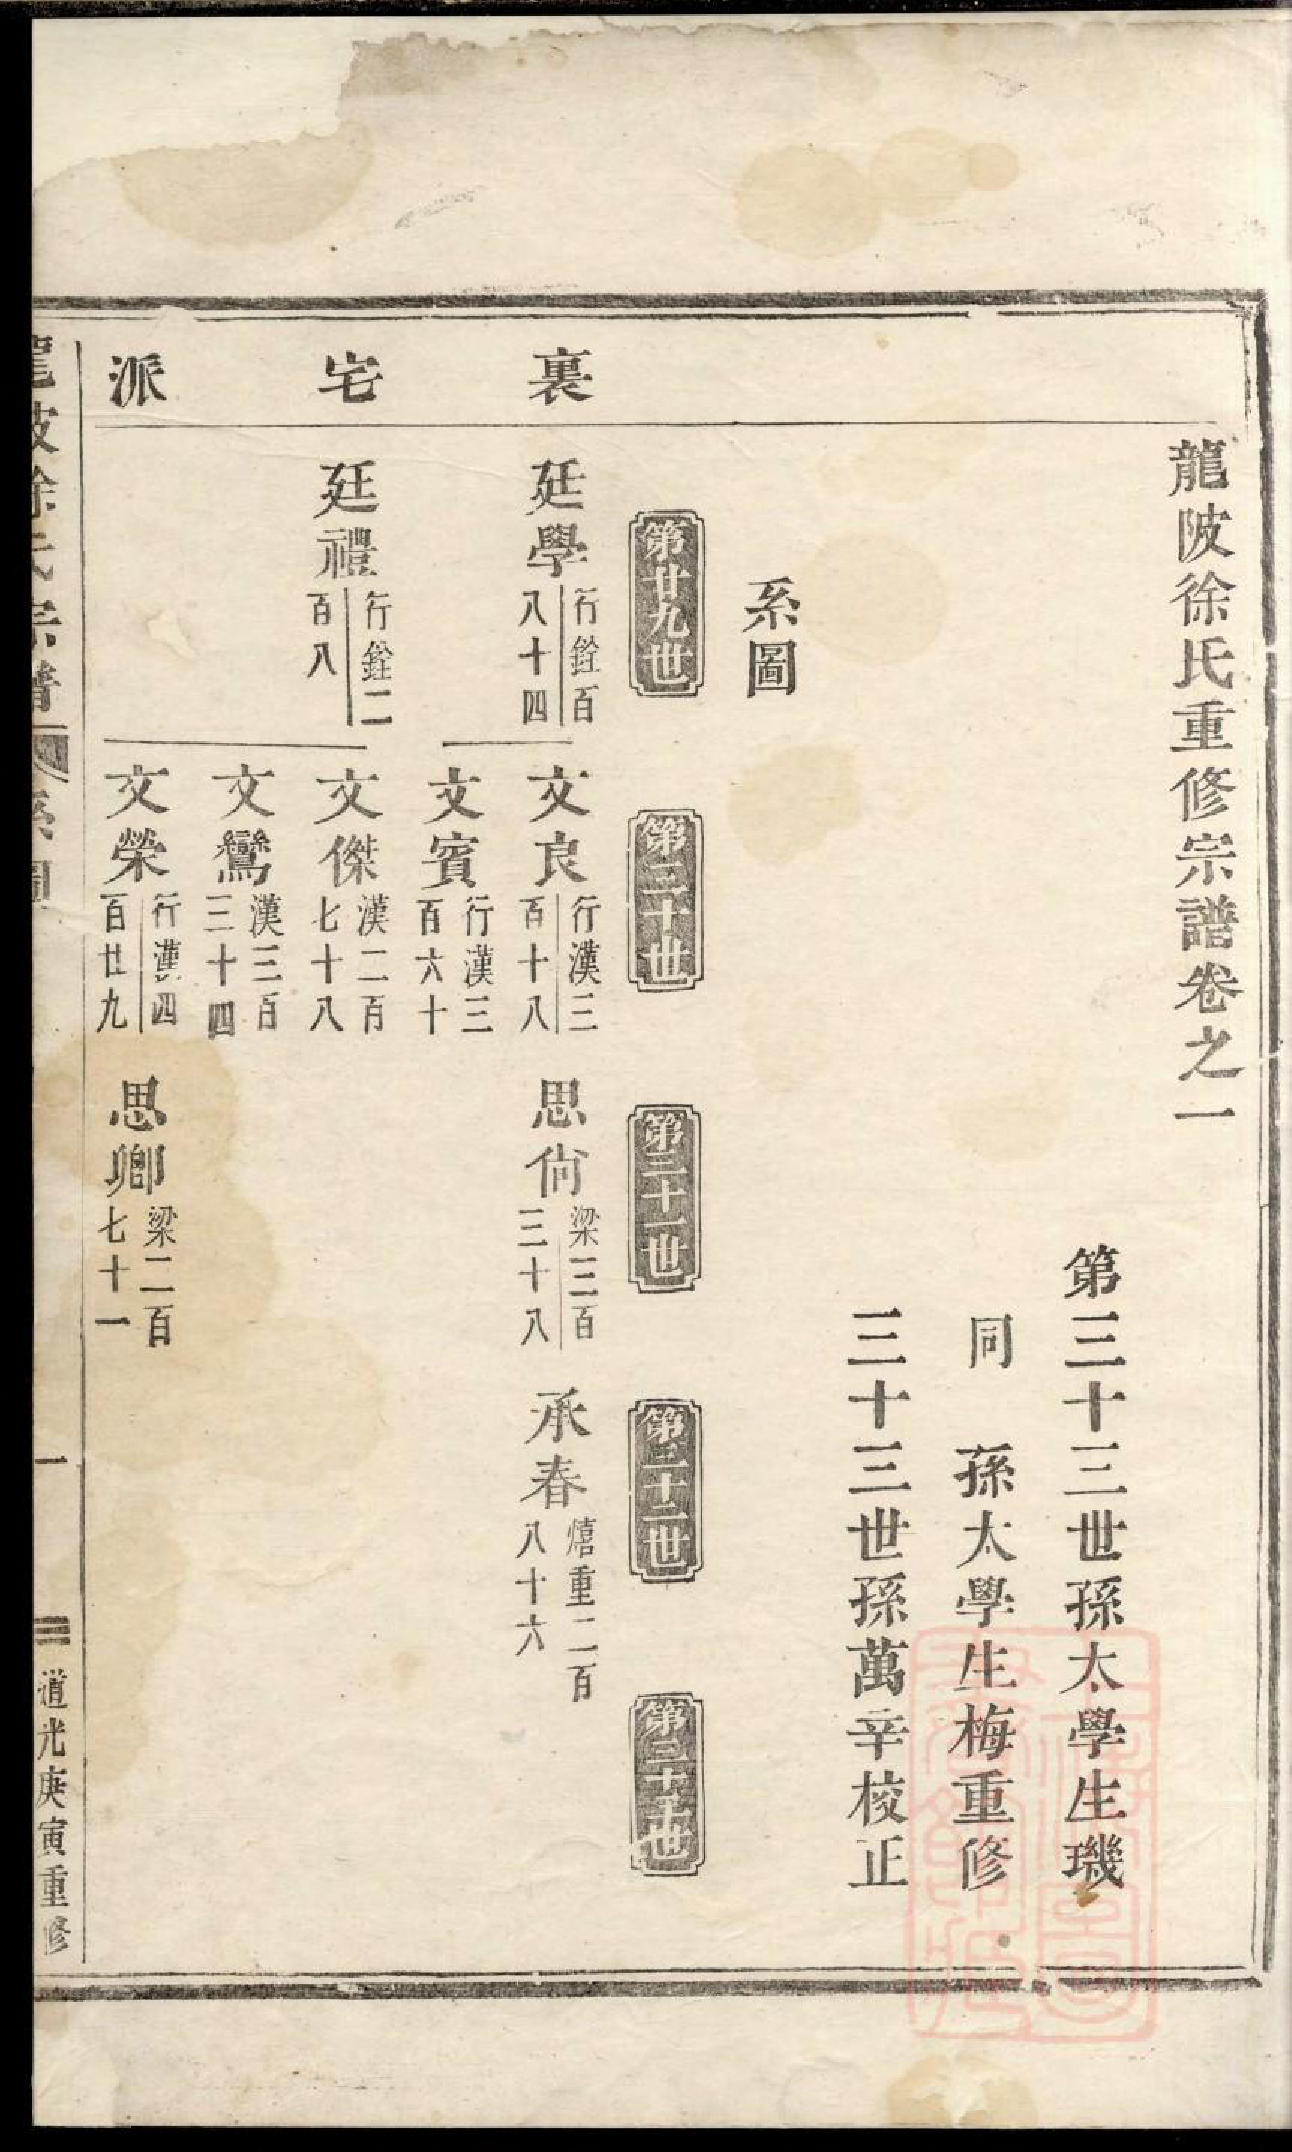 龍陂徐氏重修宗譜卷之一
第三十三世孫太學生璣
同 孫太學生梅重修
三十三世孫萬辛校正
系圖
第廿九世
第三十世
第三十一世
第三十二世
第三十三世
裏
廷學 行銓百八十四
文良 行漢三百十八
思尙 梁三百三十八
承春 熺重二百八十六
文賓 行漢三百六十
宅
廷禮 行銓二百八
文傑 漢二百七十八
文鸞 漢三百三十四
派
文榮 行漢四百廿九
思卿 梁二百七十一
龍陂徐氏宗譜 系圖 一 道光庚寅重修